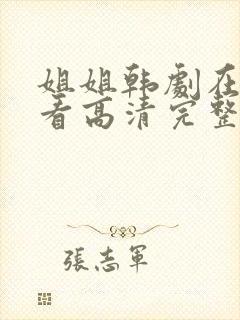 姐姐韩劇在
看高清完整
張志軍